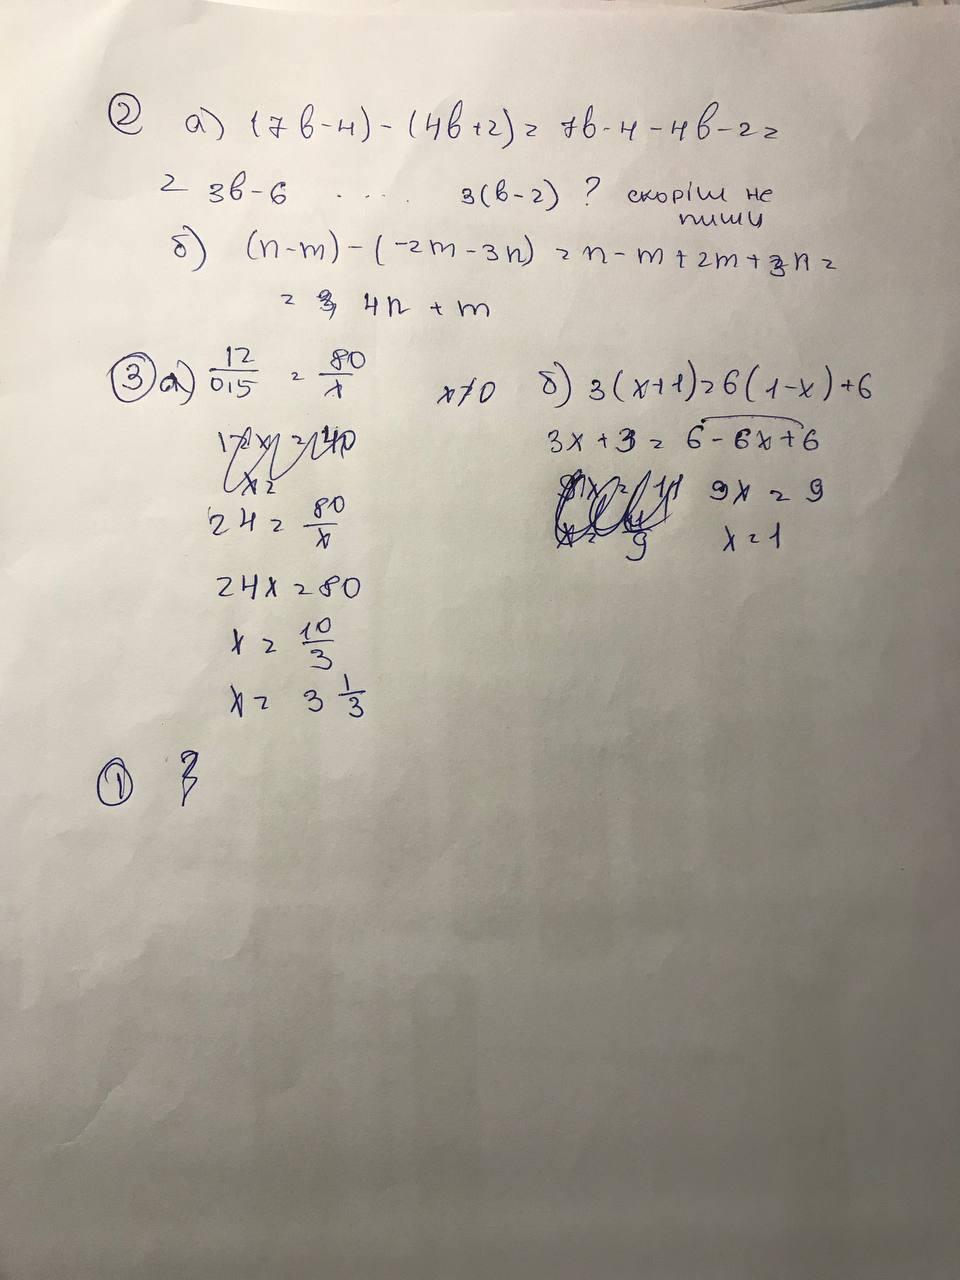 ② а) (7в-4)-(4в+2)= 7в-4-4в-2=
= 3в-6 .... 3(в-2) ? скоріш не пишу
б) (n-m)-(-2m-3n) = n-m+2m+3n=
= 4n+m
③ а) 12/0,5 = 80/x x≠0
24 = 80/x
24x = 80
x = 10/3
x = 3 1/3
б) 3(x+1)=6(1-x)+6
3x+3 = 6-6x+6
9x = 9
x = 1
①